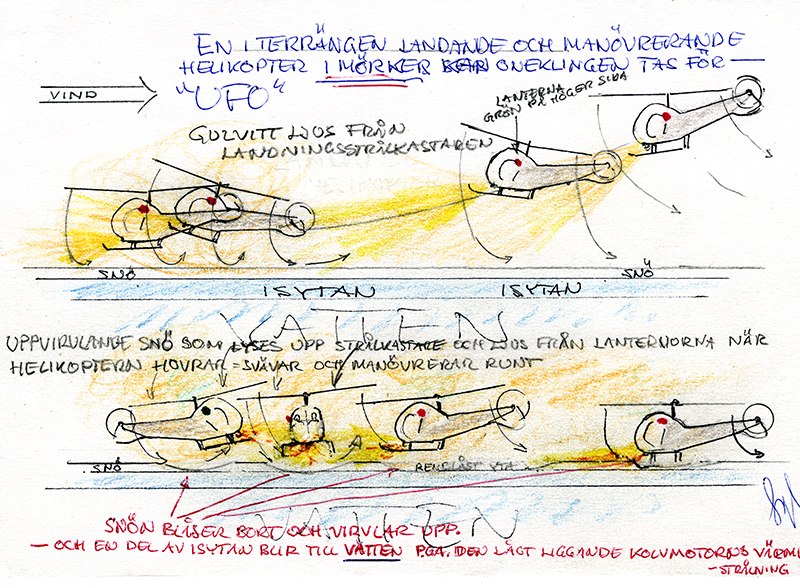 EN I TERRÄNGEN LANDANDE OCH MANÖVRERANDE
HELIKOPTER I MÖRKER KAN ONEKLINGEN TAS FÖR —
"UFO"
VIND
LANTERNA
GRÖN PÅ HÖGER SIDA
GULVITT LJUS FRÅN
LANDNINGSSTRÅLKASTAREN
SNÖ
SNÖ
ISYTAN
ISYTAN
VATTEN
UPPVIRVLANDE SNÖ SOM LYSES UPP STRÅLKASTARE OCH LJUS FRÅN LANTERNORNA NÄR
HELIKOPTERN HOVRAR = SVÄVAR OCH MANÖVRERAR RUNT
SNÖ
RENBLÅST YTA
VATTEN
SNÖN BLÅSER BORT OCH VIRVLAR UPP.
— OCH EN DEL AV ISYTAN BLIR TILL VATTEN P.G.A. DEN LÅGT LIGGANDE KOLVMOTORNS VÄRME
- STRÅLNING